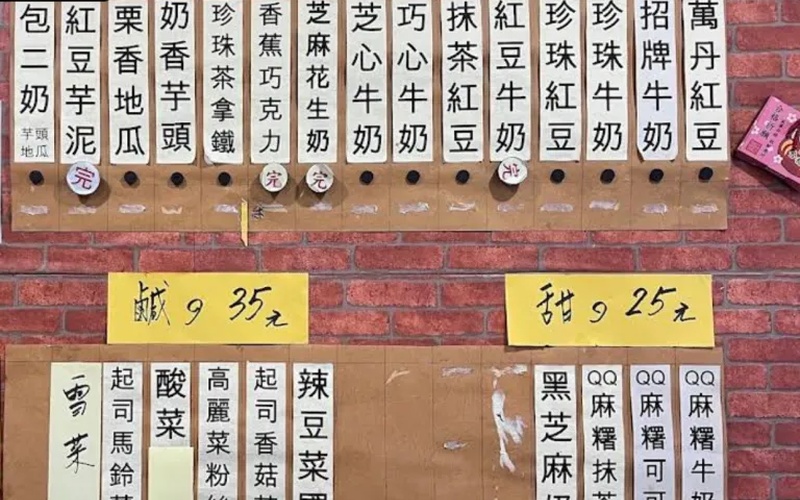 萬丹紅豆
招牌牛奶
珍珠牛奶
珍珠紅豆
紅豆牛奶
完
抹茶紅豆
巧心牛奶
芝心牛奶
芝麻花生奶
完
香蕉巧克力
完
珍珠茶拿鐵
奶香芋頭
栗香地瓜
紅豆芋泥
完
包二奶
芋頭
地瓜
甜の25元
鹹の35元
QQ麻糬牛奶
QQ麻糬可可
QQ麻糬抹茶
黑芝麻
辣豆菜
起司香菇
高麗菜粉
酸菜
起司馬鈴
雪菜